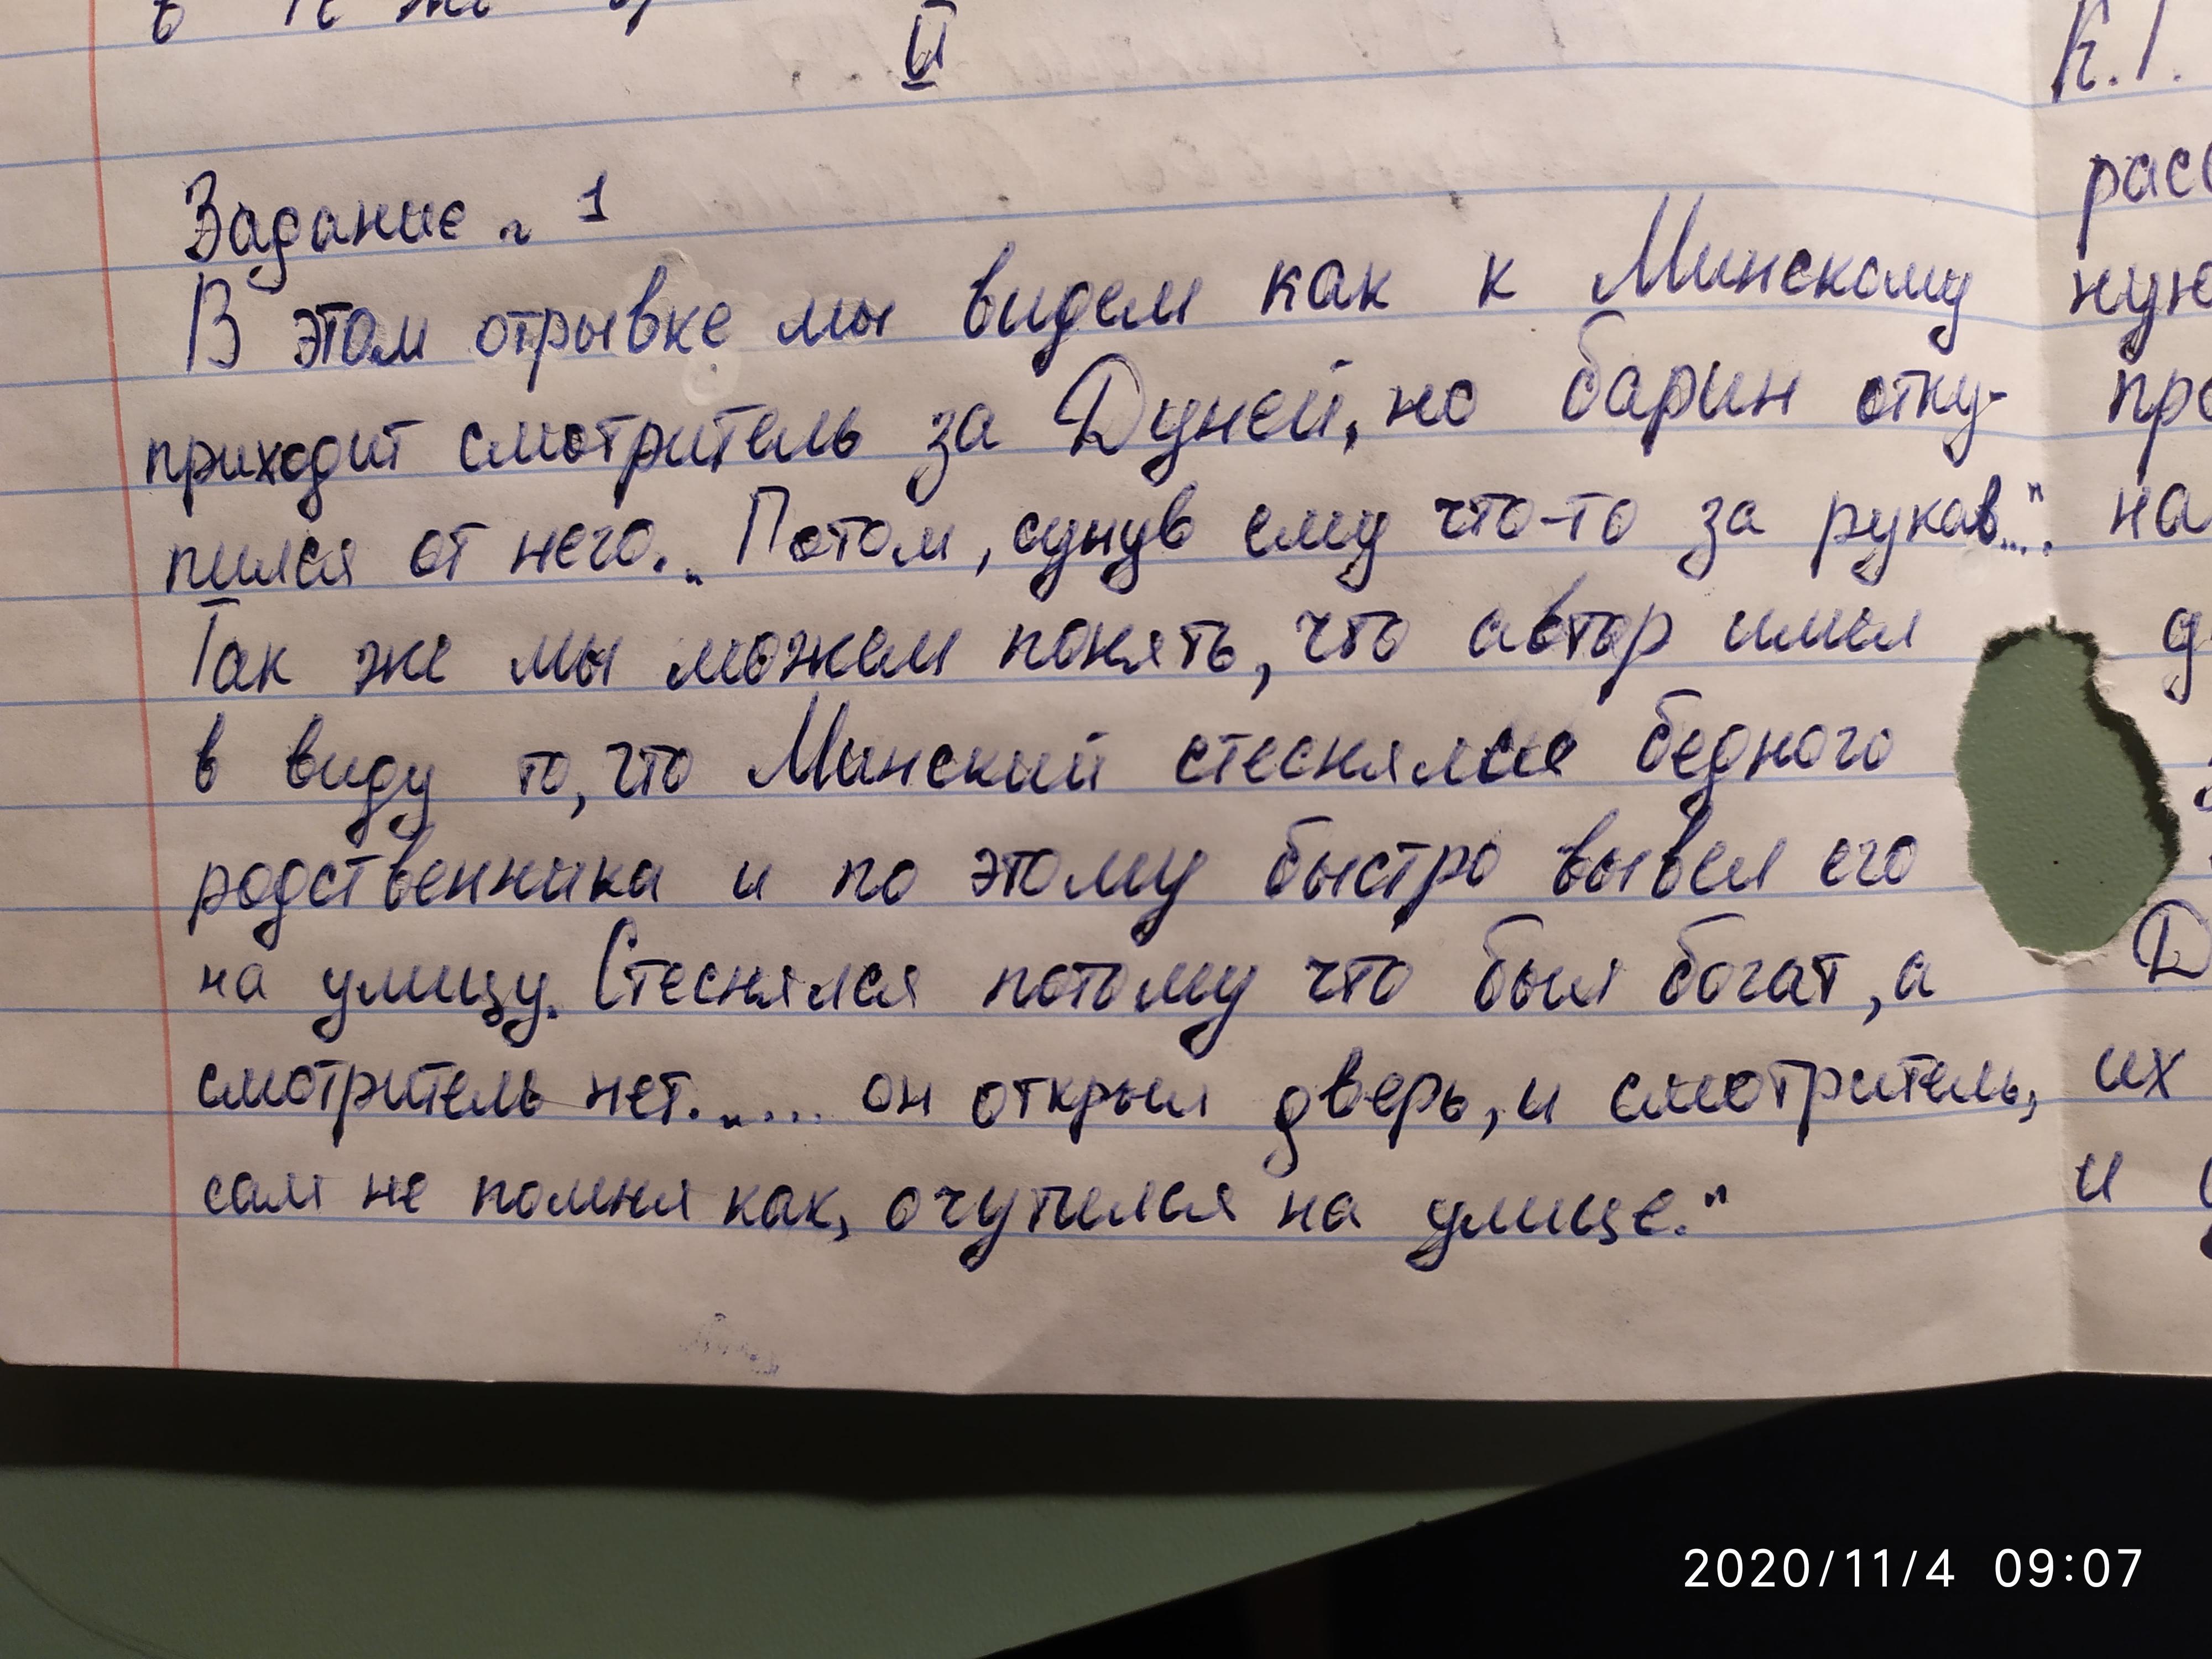 II
Задание ~ 1
В этом отрывке мы видем как к Минскому
приходит смотритель за Дуней, но барин отку-
пился от него. „Потом, сунув ему что-то за рукав...".
Так же мы можем понять, что автор имел
в виду то, что Минский стеснялся бедного
родственника и по этому быстро вывел его
на улицу. Стеснялся потому что был богат, а
смотритель нет. „... он открыл дверь, и смотритель,
сам не помня как, очутился на улице."
К.Г.
расс
ную
про
на
д
D
их
и
2020/11/4 09:07